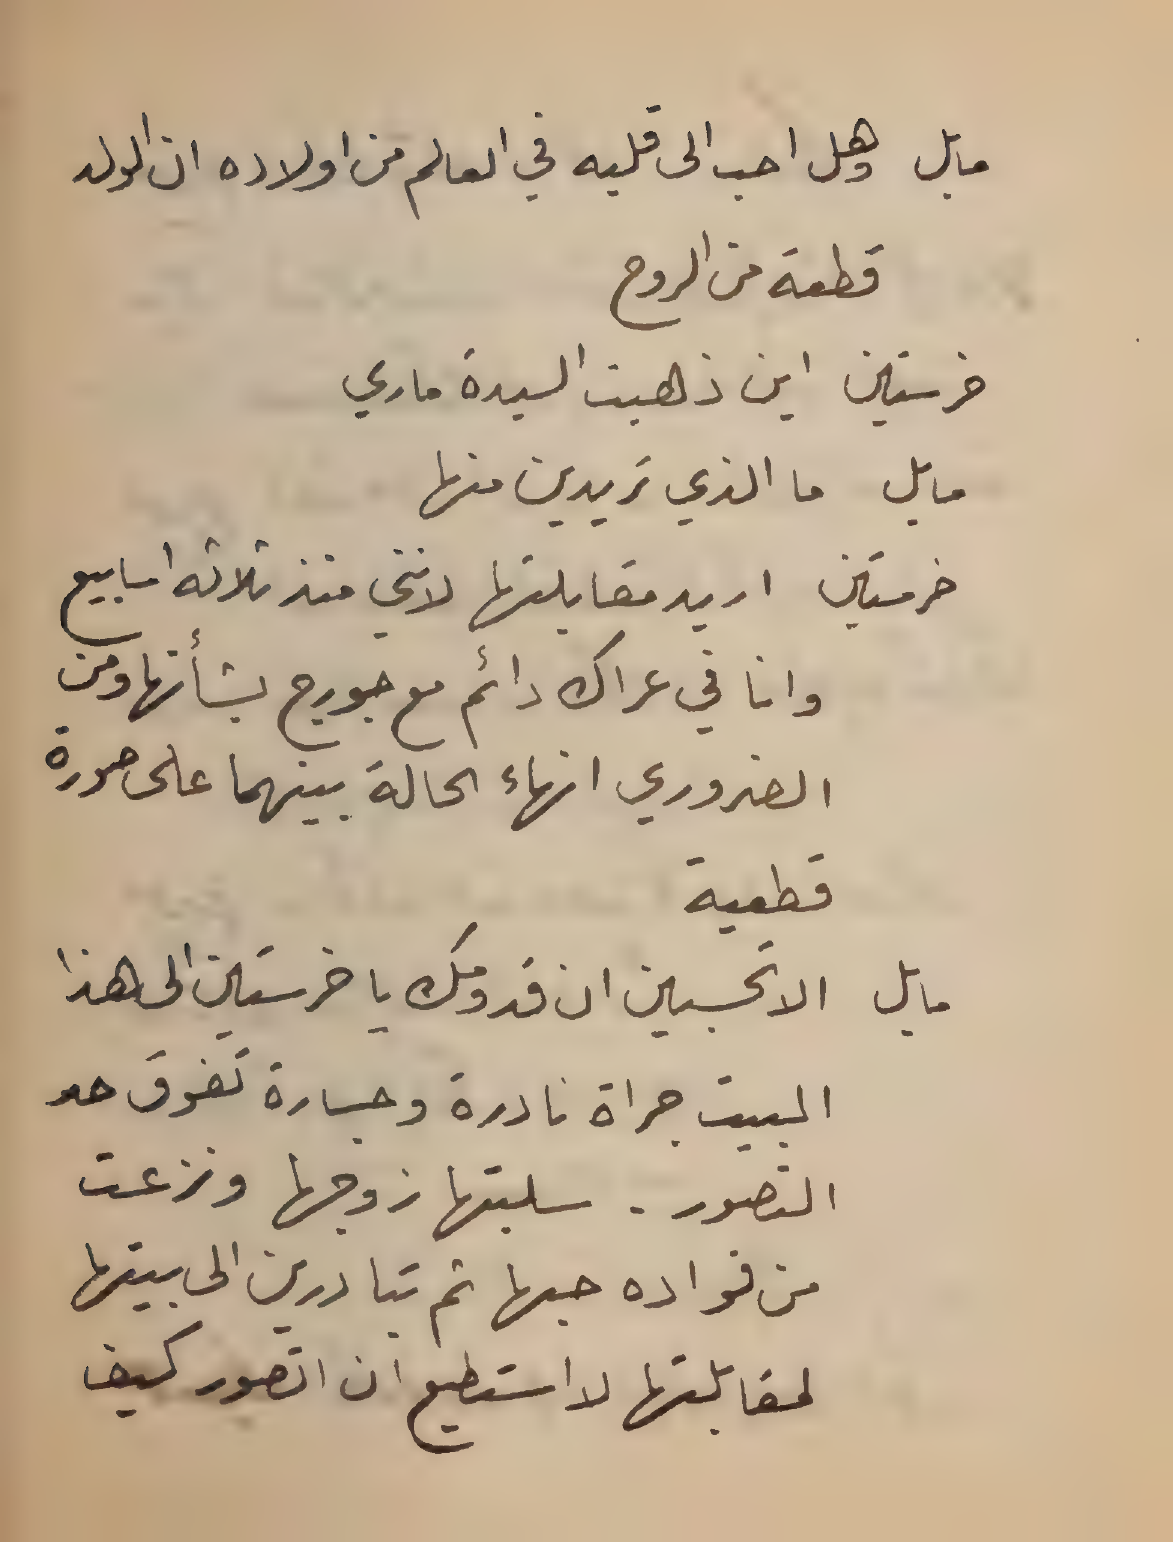 مابل وهل احب الى قلبه في العالم من اولاده ان الولد
قطعة من الروح
خرستين اين ذهبت السيدة ماري
مابل ما الذي تريدين منها
خرستين اريد مقابلتها لانني منذ ثلاثه اسابيع
وانا في عراك دائم مع جورج بشأنها ومن
الضروري انهاء الحالة بينهما على صورة
قطعية
مابل الا تحسبين ان قدومك يا خرستين الى هذا
البيت جراة نادرة وجسارة تفوق حد
التصور . سلبتها زوجها ونزعت
من فواده حبها ثم تبادرين الى بيتها
لمقابلتها لا استطيع ان اتصور كيف